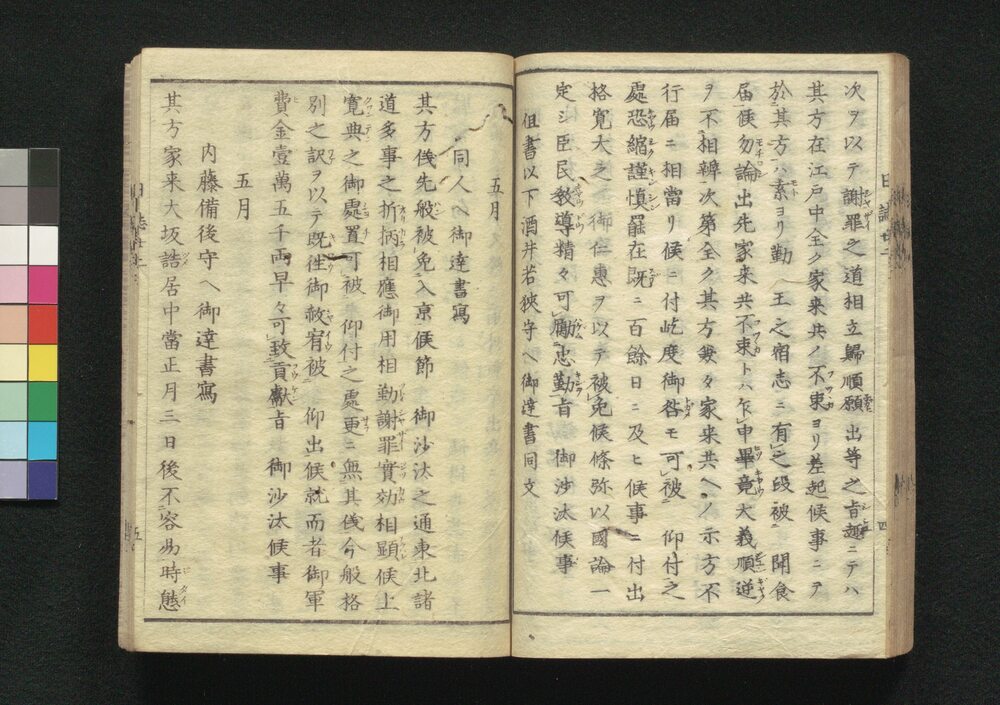 次ヲ以テ謝罪之道相立歸順願出等之旨趣ニテハ
其方在江戸中全ク家来共ノ不束ヨリ差起候事ニテ
於其方ハ素ヨリ勤 王之宿志ニ有之段被 聞食
届候勿論出先家来共不束トハ乍申畢竟大義順逆
ヲ不相辨次第全ク其方兼々家来共ヘノ示方不
行届ニ相當リ候ニ付屹度御咎モ可被 仰付之
處恐縮謹慎罷在既ニ百餘日ニ及ヒ候事ニ付出
格寛大之御仁惠ヲ以テ被免候條弥以國論一
定シ臣民教導精々可勵忠勤旨御沙汰候事
但書以下酒井若狹守ヘ御達書同文
五月
同人ヘ御達書寫
其方儀先般被免入京候節 御沙汰之通東北諸
道多事之折柄相應御用相勤謝罪實効相顕候上
寛典之御處置可被 仰付之處更ニ無其儀今般格
別之訳ヲ以テ既徃御赦宥被 仰出候就而者御軍
費金壹萬五千両早々可致貢獻旨 御沙汰候事
五月
内藤備後守ヘ御達書寫
其方家来大坂詰居中當正月三日後不容易時態